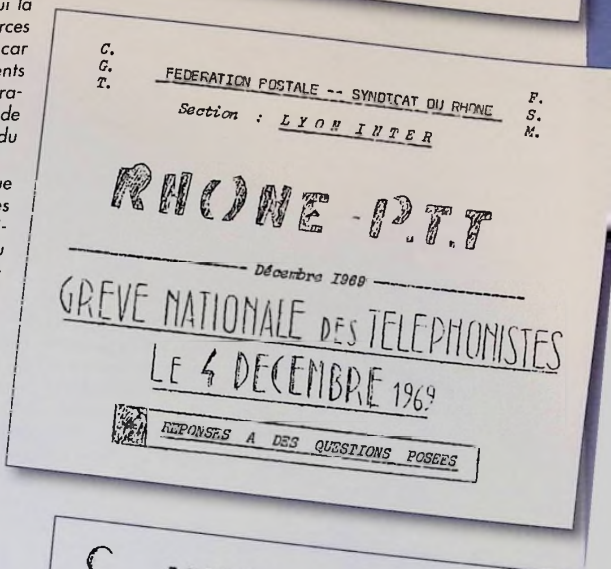 ui la
rces
car
ents
ra-
de
du
ue
es
C.
G.
T.
FEDERATION POSTALE -- SYNDICAT DU RHONE
F.
S.
M.
Section : LYON INTER
RHONE - P.T.T
Décembre 1969
GREVE NATIONALE DES TELEPHONISTES
LE 4 DECEMBRE 1969
REPONSES A DES QUESTIONS POSEES